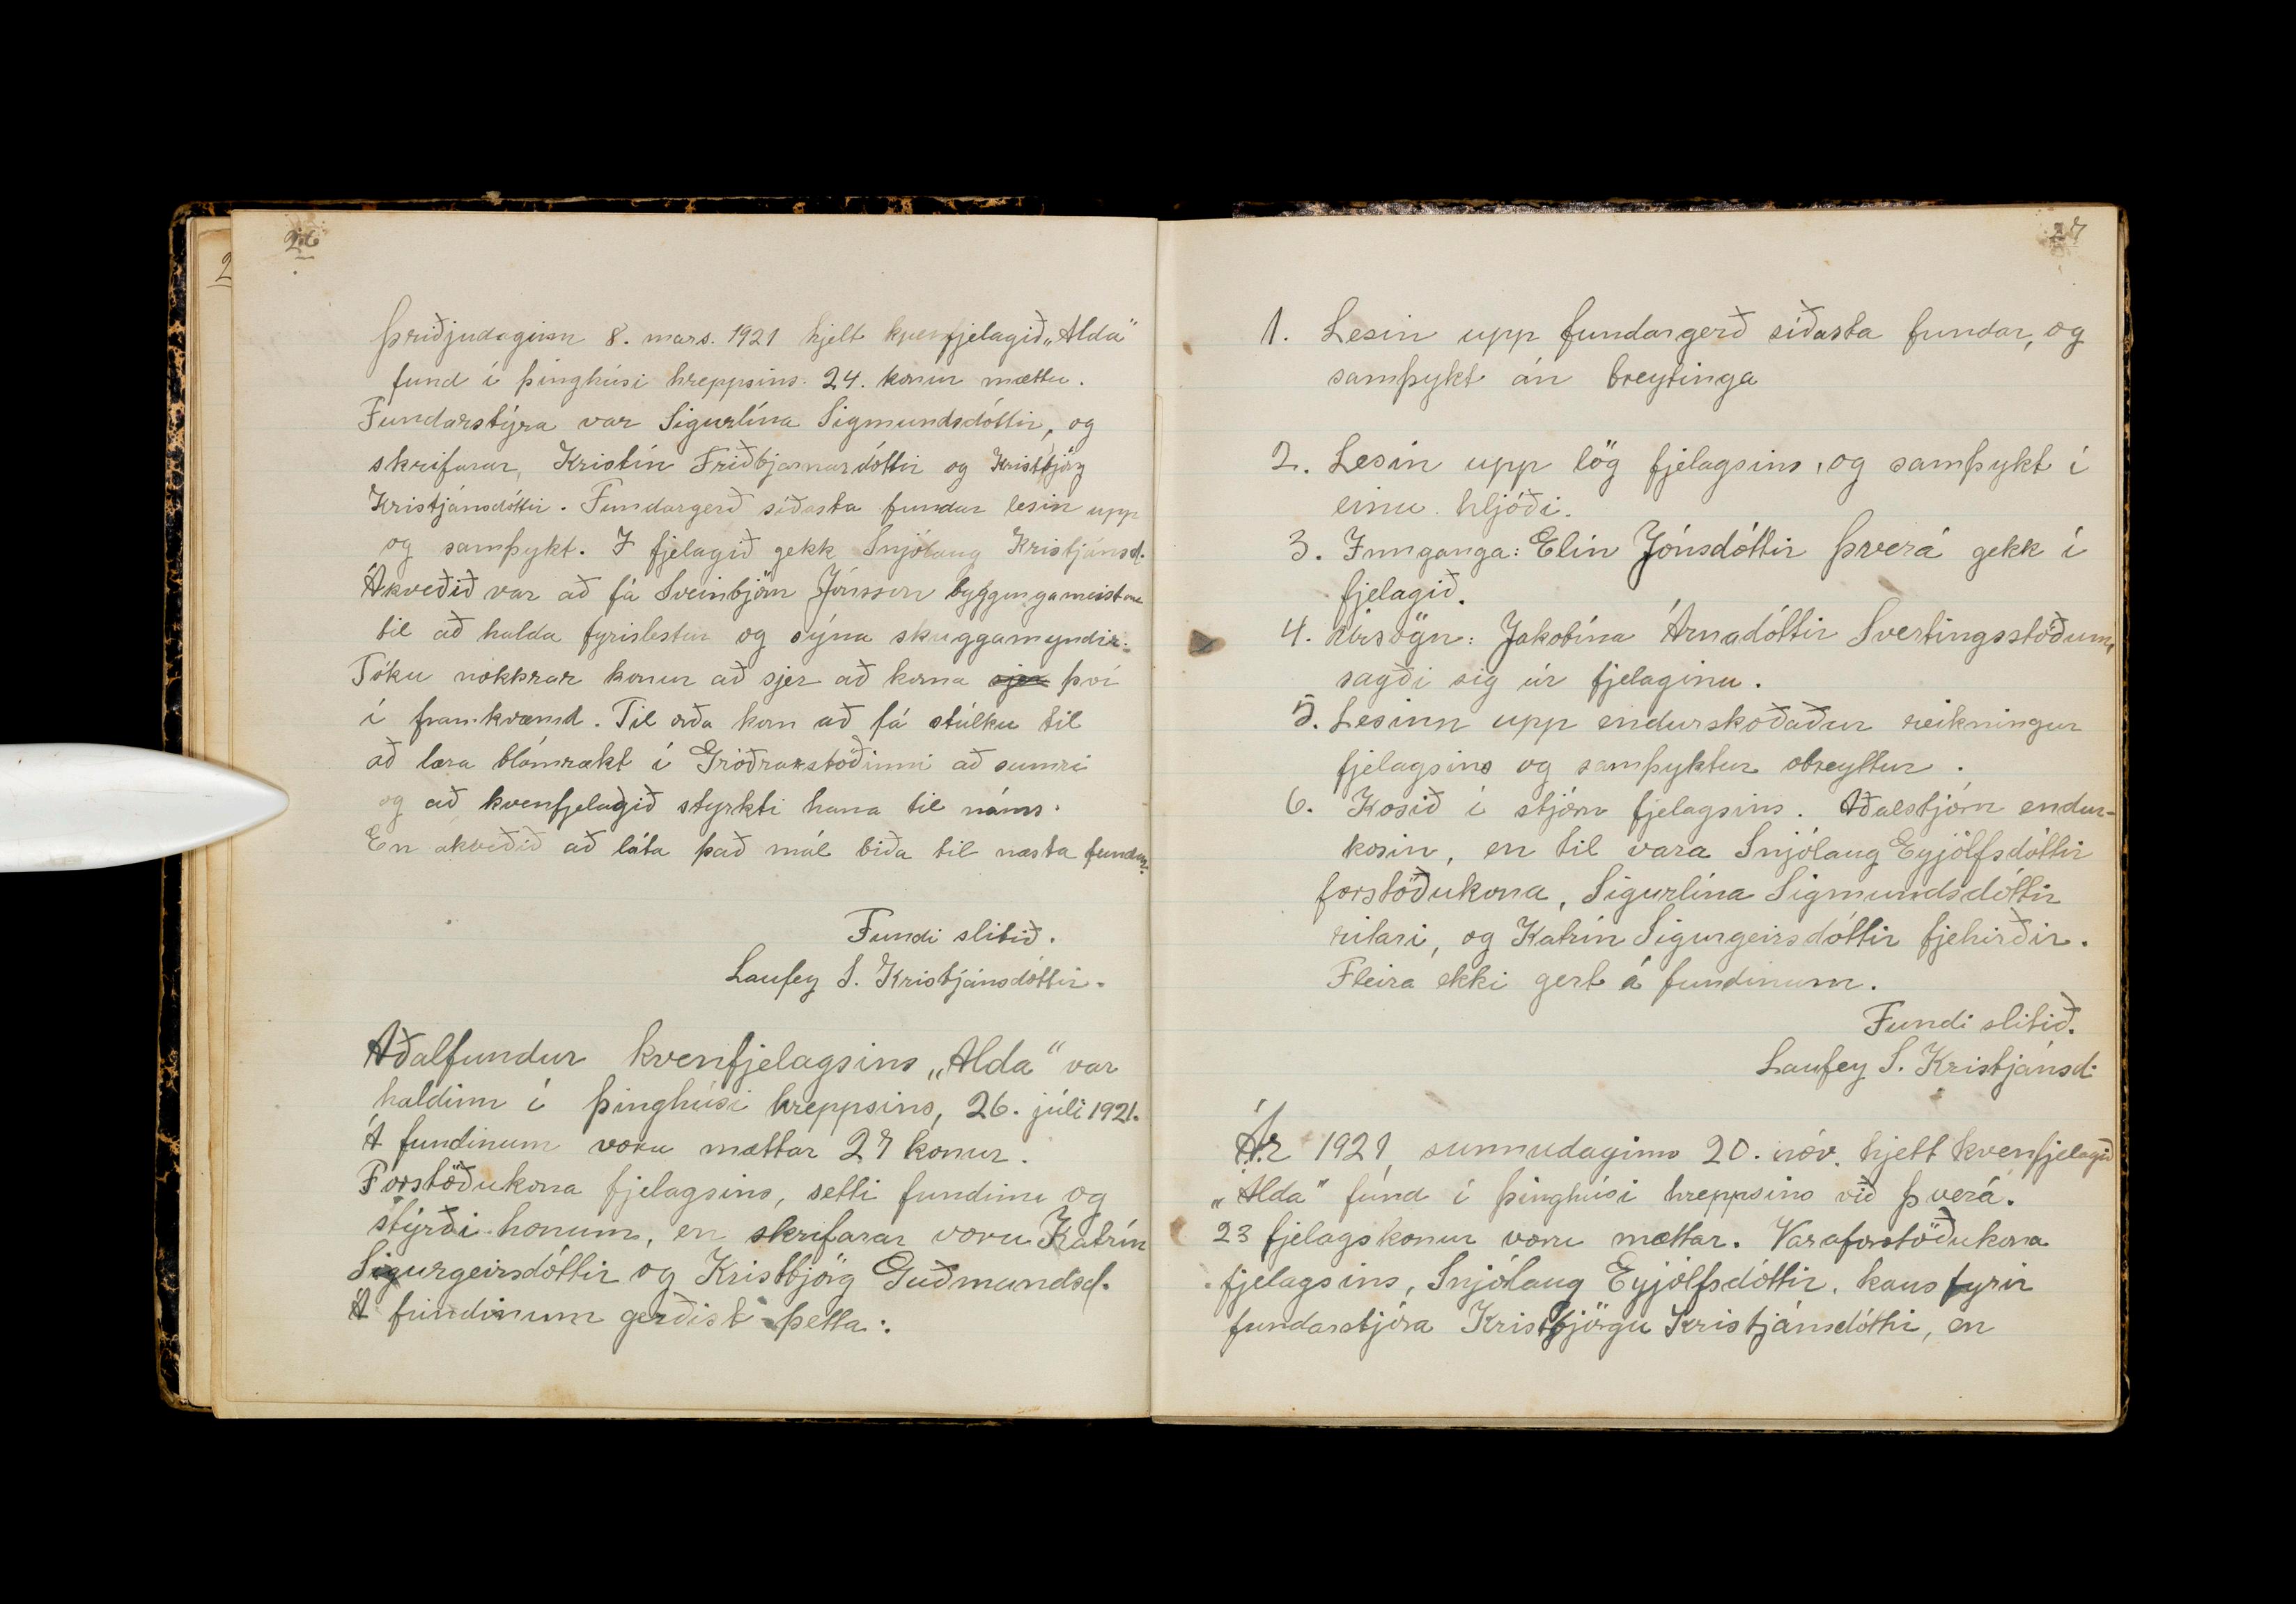 26
Þriðjudaginn 8. mars. 1921 hjelt kvenfjelagið „Alda"
fund í þinghúsi hreppsins. 24. konur mættu.
Fundarstýra var Sigurlína Sigmundsdóttir, og
skrifarar, Kristín Friðbjarnardóttir og Kristbjörg
Kristjánsdóttir. Fundargerð síðasta fundar lesin upp
og samþykt. Í fjelagið gekk Snjólaug Kristjánsd.
Ákveðið var að fá Sveinbjörn Jónsson byggingameistara
til að halda fyrirlestur og sýna skuggamyndir.
Tóku nokkrar konur að sjer að koma sjer því
í framkvæmd. Til orða kom að fá stúlku til
að læra blómrækt í Gróðrarstöðinni að sumri
og að kvenfjelagið styrkti hana til náms.
En ákveðið að láta það mál bíða til næsta fundar.
Fundi slitið.
Laufey S. Kristjánsdóttir.
Aðalfundur kvenfjelagsins „Alda" var
haldinn í þinghúsi hreppsins, 26. júlí 1921.
Á fundinum voru mættar 27 konur.
Forstöðukona fjelagsins, setti fundinn og
stýrði honum, en skrifarar voru Katrín
Sigurgeirsdóttir og Kristbjörg Guðmundsd.
Á fundinum gerðist þetta:
27
1. Lesin upp fundargerð síðasta fundar, og
samþykt án breytinga
2. Lesin upp lög fjelagsins, og samþykt í
einu hljóði.
3. Innganga: Elín Jónsdóttir Þverá gekk í
fjelagið.
4. Úrsögn: Jakobína Árnadóttir Svertingsstöðum,
sagði sig úr fjelaginu.
5. Lesinn upp endurskoðaður reikningur
fjelagsins og samþyktur óbreyttur.
6. Kosið í stjórn fjelagsins. Aðalstjórn endur-
kosin, en til vara Snjólaug Eyjólfsdóttir
forstöðukona, Sigurlína Sigmundsdóttir
ritari, og Katrín Sigurgeirsdóttir fjehirðir.
Fleira ekki gert á fundinum.
Fundi slitið.
Laufey S. Kristjánsd.
Ár 1921, sunnudaginn 20. nóv. hjelt kvenfjelagið
„Alda" fund í þinghúsi hreppsins við Þverá.
23 fjelagskonur voru mættar. Varaforstöðukona
fjelagsins, Snjólaug Eyjólfsdóttir, kaus fyrir
fundarstjóra Kristbjörgu Kristjánsdóttir, en